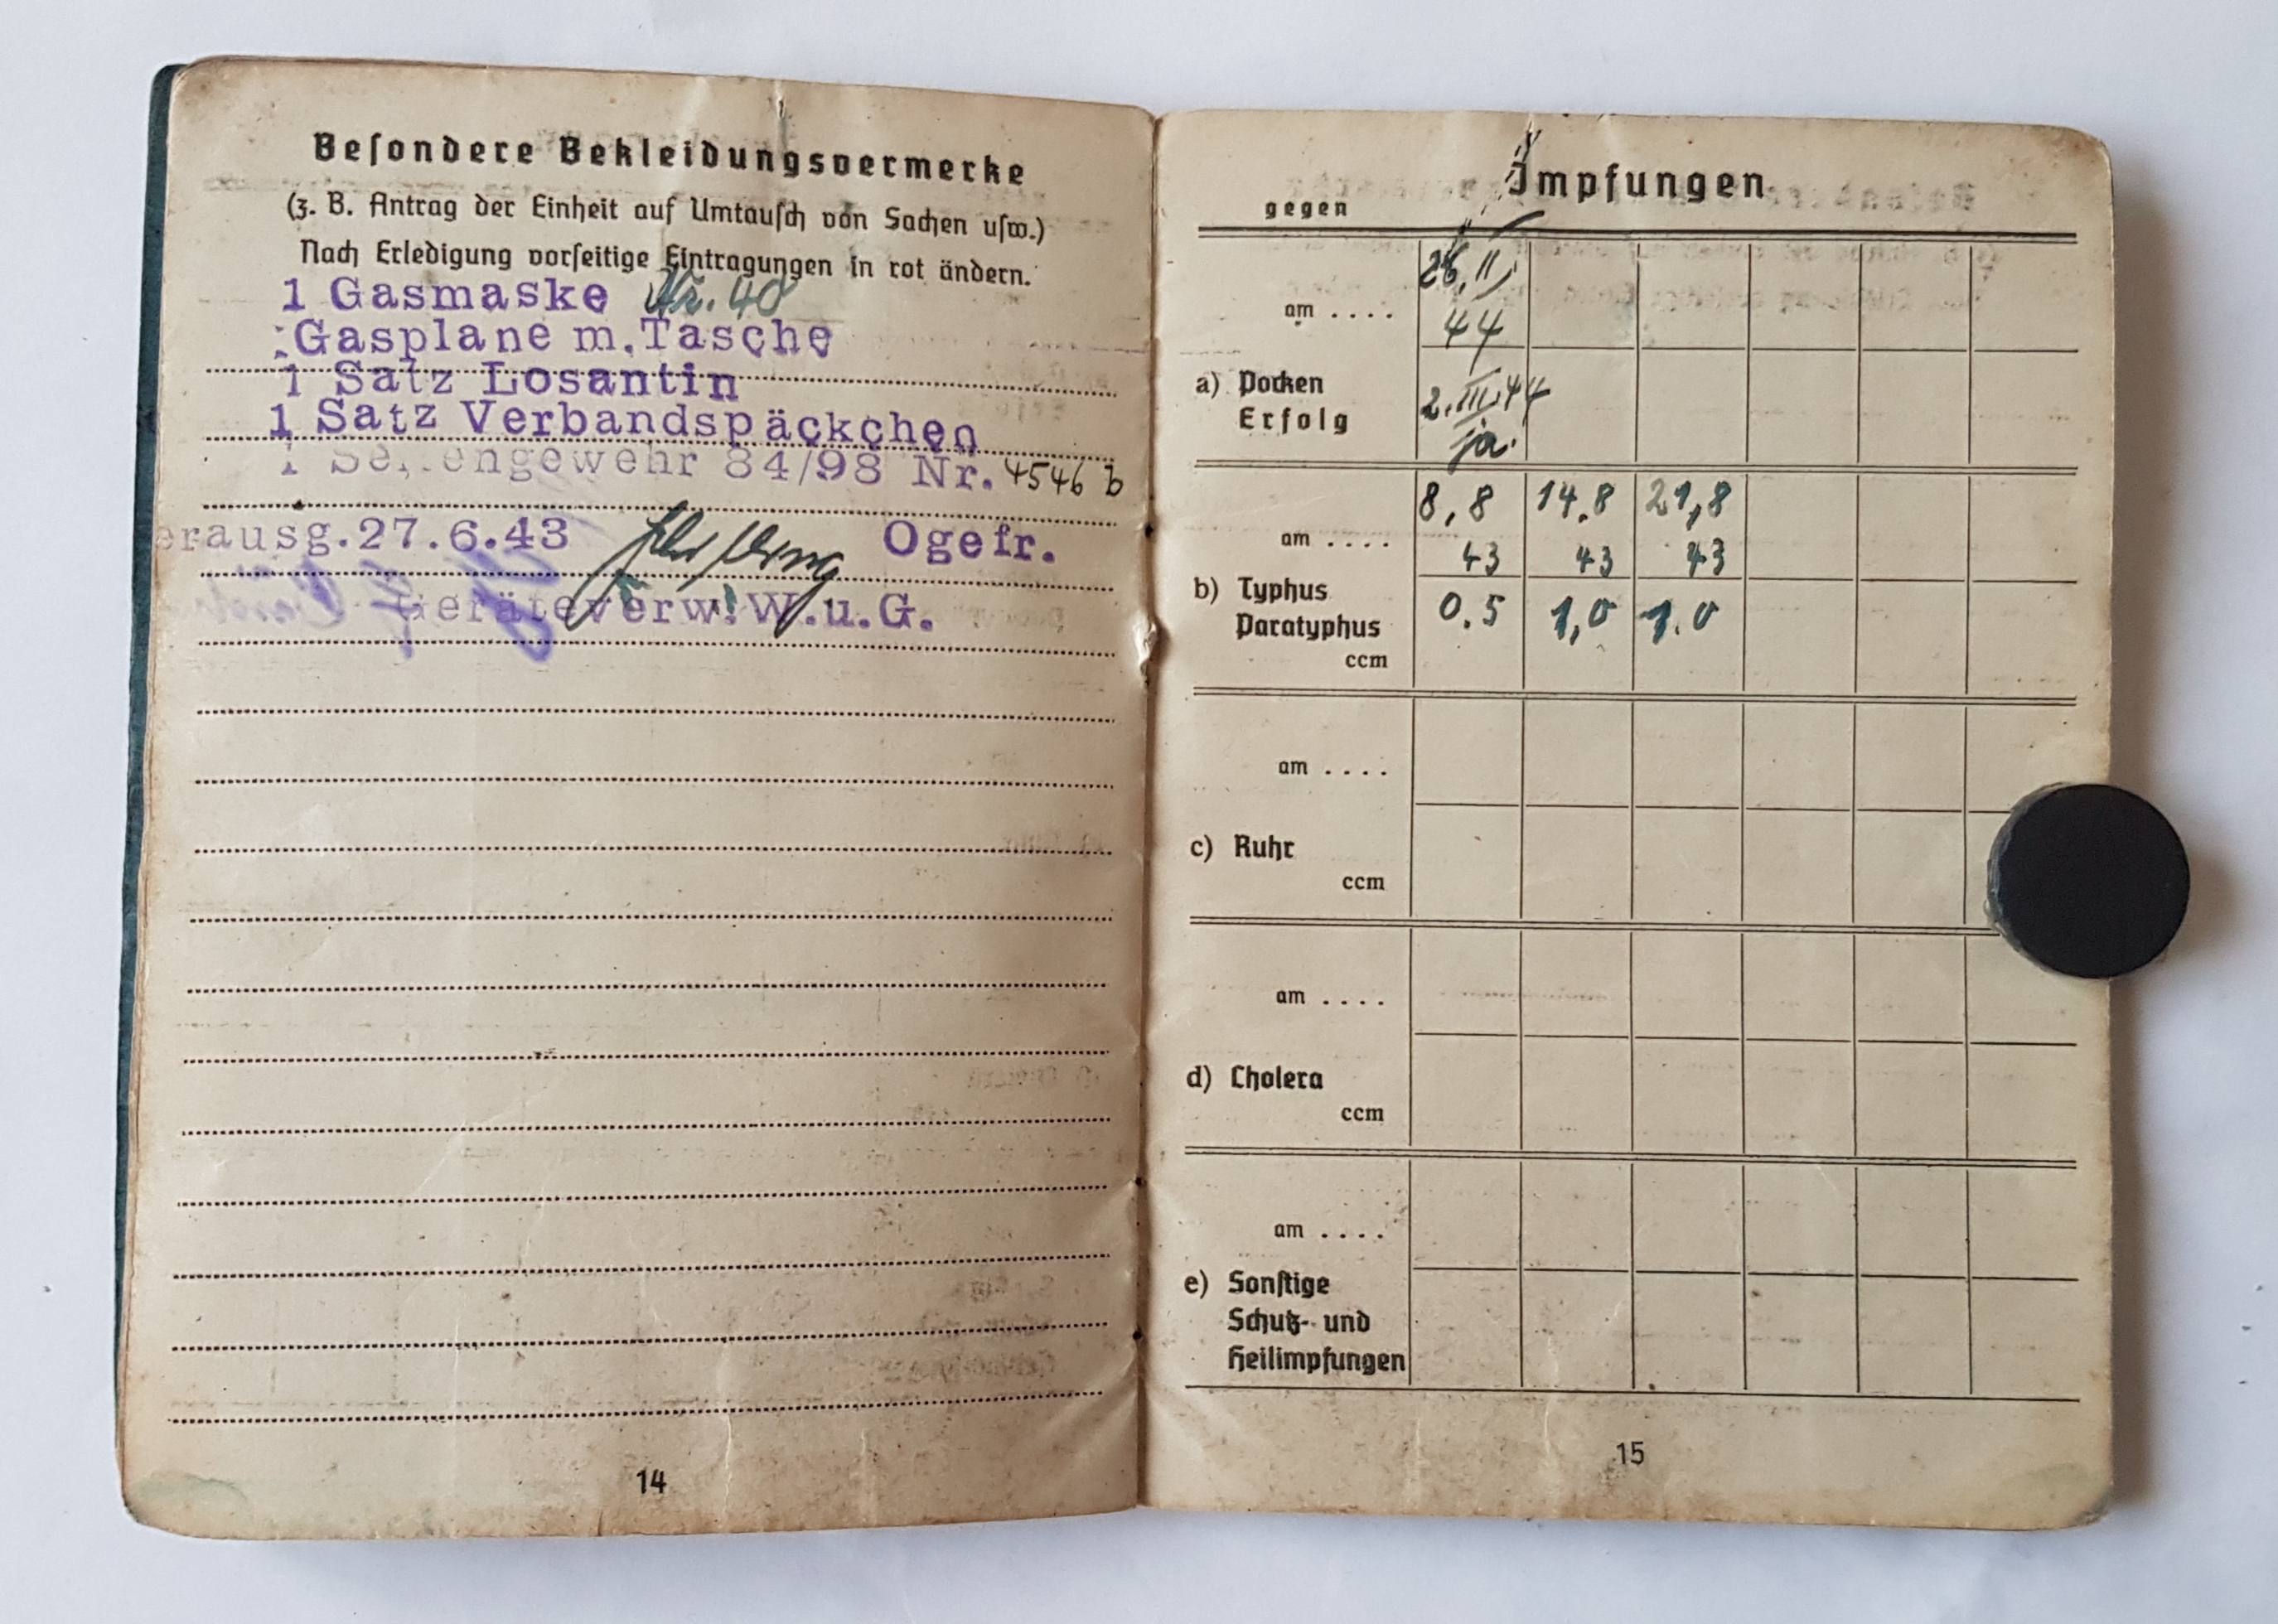 Besondere Bekleidungsvermerke
(z. B. Antrag der Einheit auf Umtausch von Sachen usw.)
Nach Erledigung vorseitige Eintragungen in rot ändern.
1 Gasmaske Gr. 40
Gasplane m. Tasche
1 Satz Losantin
1 Satz Verbandspäckchen
1 Seitengewehr 84/98 Nr. 4546 b
erausg. 27.6.43 Ogefr.
Geräteverw. W.u.G.
14
Impfungen
gegen
am .... 26. II. 44
a) Pocken
Erfolg 2. III. 44 ja.
am .... 8,8 43 14.8 43 21,8 43
b) Typhus
Paratyphus 0.5 1,0 1.0
ccm
am ....
c) Ruhr
ccm
am ....
d) Cholera
ccm
am ....
e) Sonstige
Schutz- und
Heilimpfungen
15